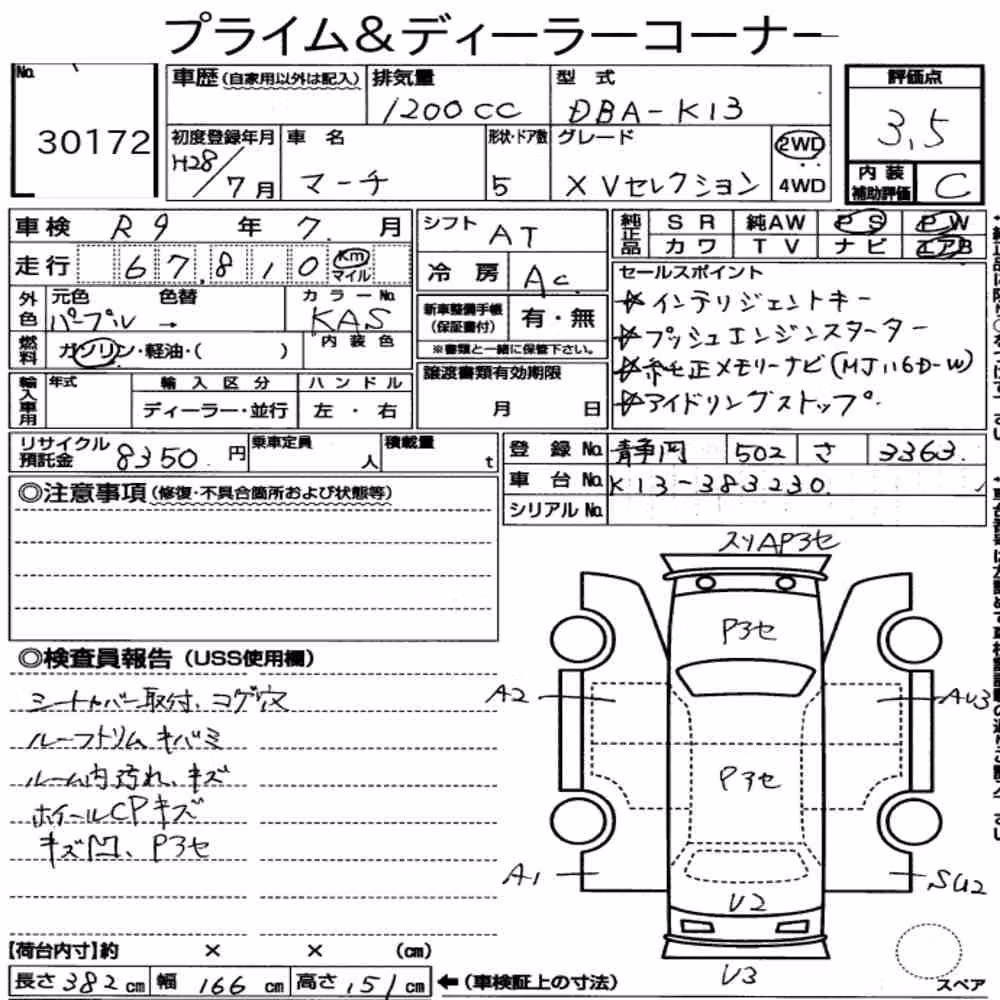 プライム&ディーラーコーナー
No. 30172
車歴(自家用以外は記入)
排気量 1200cc
型式 DBA-K13
評価点 3,5
内装補助評価 C
初度登録年月 H28/7月
車名 マーチ
形状・ドア数 5
グレード XVセレクション
2WD
4WD
車検 R9年7.月
走行 67,810 Km マイル
シフト AT
冷房 Ac.
純正品 SR 純AW PS PW
カワ TV ナビ エアB
外色 元色 色替 カラーNo.
パープル → KAS
燃料 ガソリン・軽油・( )
内装色
新車整備手帳(保証書付) 有・無
※書類と一緒に保管下さい。
セールスポイント
☆インテリジェントキー
☆プッシュエンジンスターター
☆純正メモリーナビ(MJ116D-W)
☆アイドリングストップ.
輸入車用 年式 輸入区分 ハンドル
ディーラー・並行 左・右
譲渡書類有効期限
月 日
リサイクル預託金 8350円
乗車定員 人
積載量 t
登録No. 静岡 502 さ 3363.
車台No. K13-383230.
シリアルNo.
◎注意事項(修復・不具合箇所および状態等)
◎検査員報告(USS使用欄)
シートカバー取付、コゲ穴
ルーフトリムキバミ
ルーム内汚れ、キズ
ホイールCPキズ
キズ凹、P3セ
スリAP3セ
P3セ
A2
AU3
P3セ
A1
SU2
U2
U3
スペア
【荷台内寸】約 × × (cm)
長さ382cm 幅166cm 高さ151cm ←(車検証上の寸法)